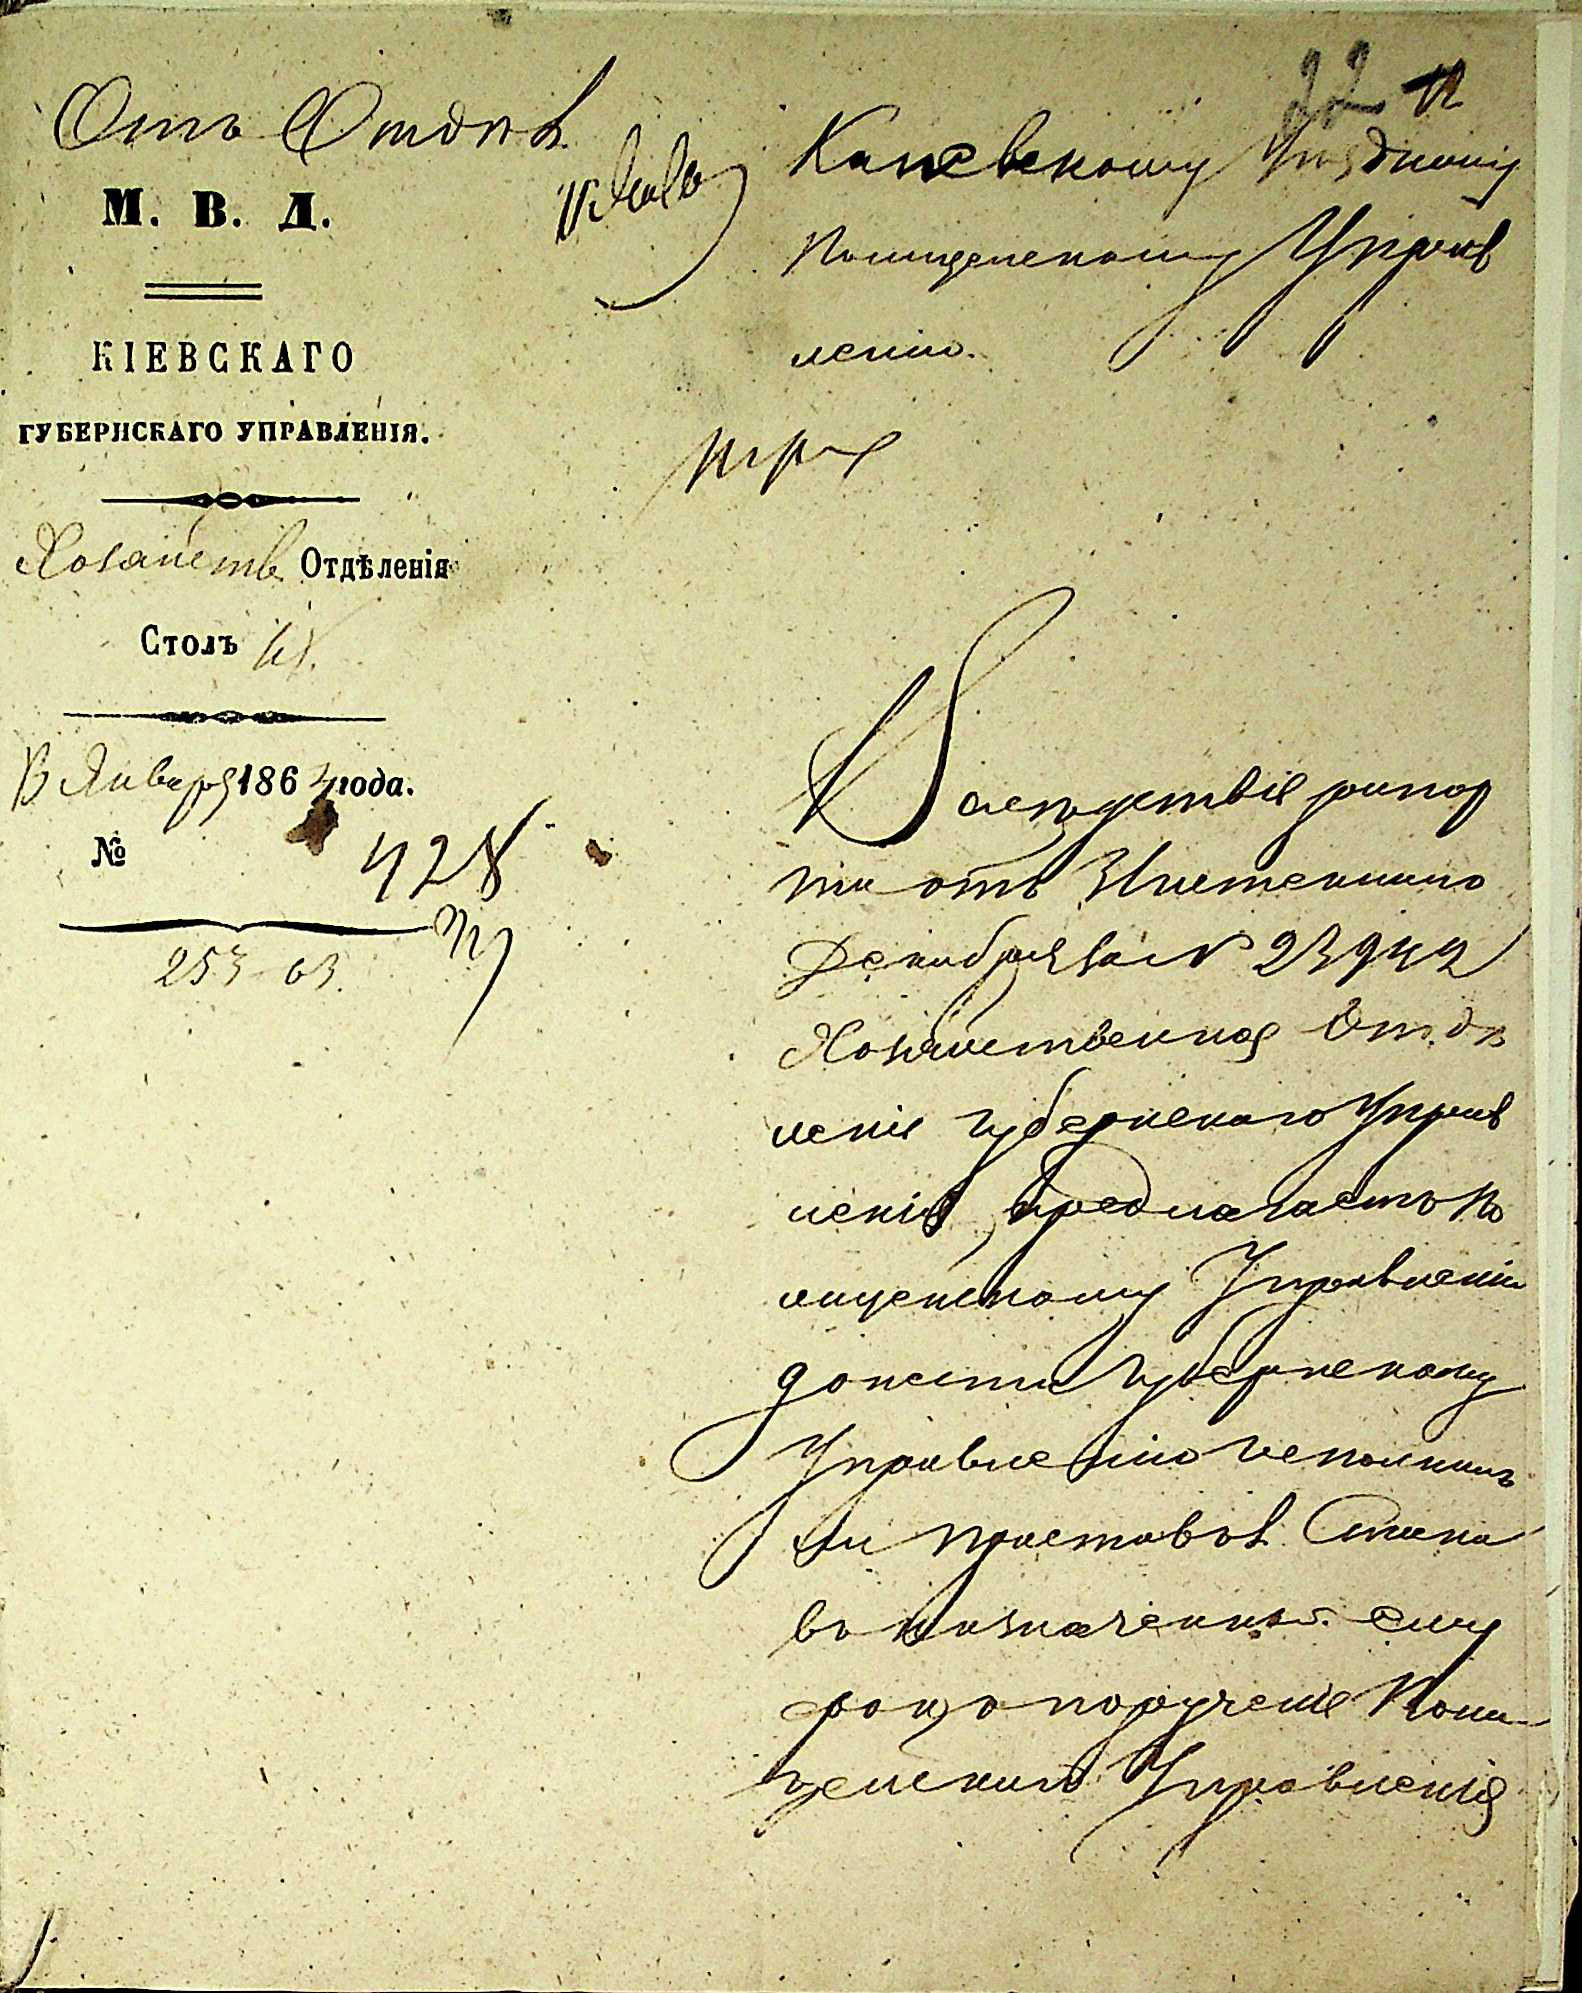 22
Отъ Отдѣл.
М. В. Д.
КІЕВСКАГО
ГУБЕРНСКАГО УПРАВЛЕНІЯ.
Хозяйств. Отдѣленія
Столъ
Января 1864 года.
№ 428
253 63.
Каневскому Уѣздному
Полицейскому Управ
ленію.
Вслѣдствіе рапор
та отъ
Декабря за № 23942
Хозяйственное Отдѣ
леніе Губернскаго Управ
ленія, предлагаетъ По
лицейскому Управленію
донести Губернскому
Управленію исполнилъ
ли Приставъ Стана
въ назначенный ему
срокъ порученіе Поли
цейскаго Управленія